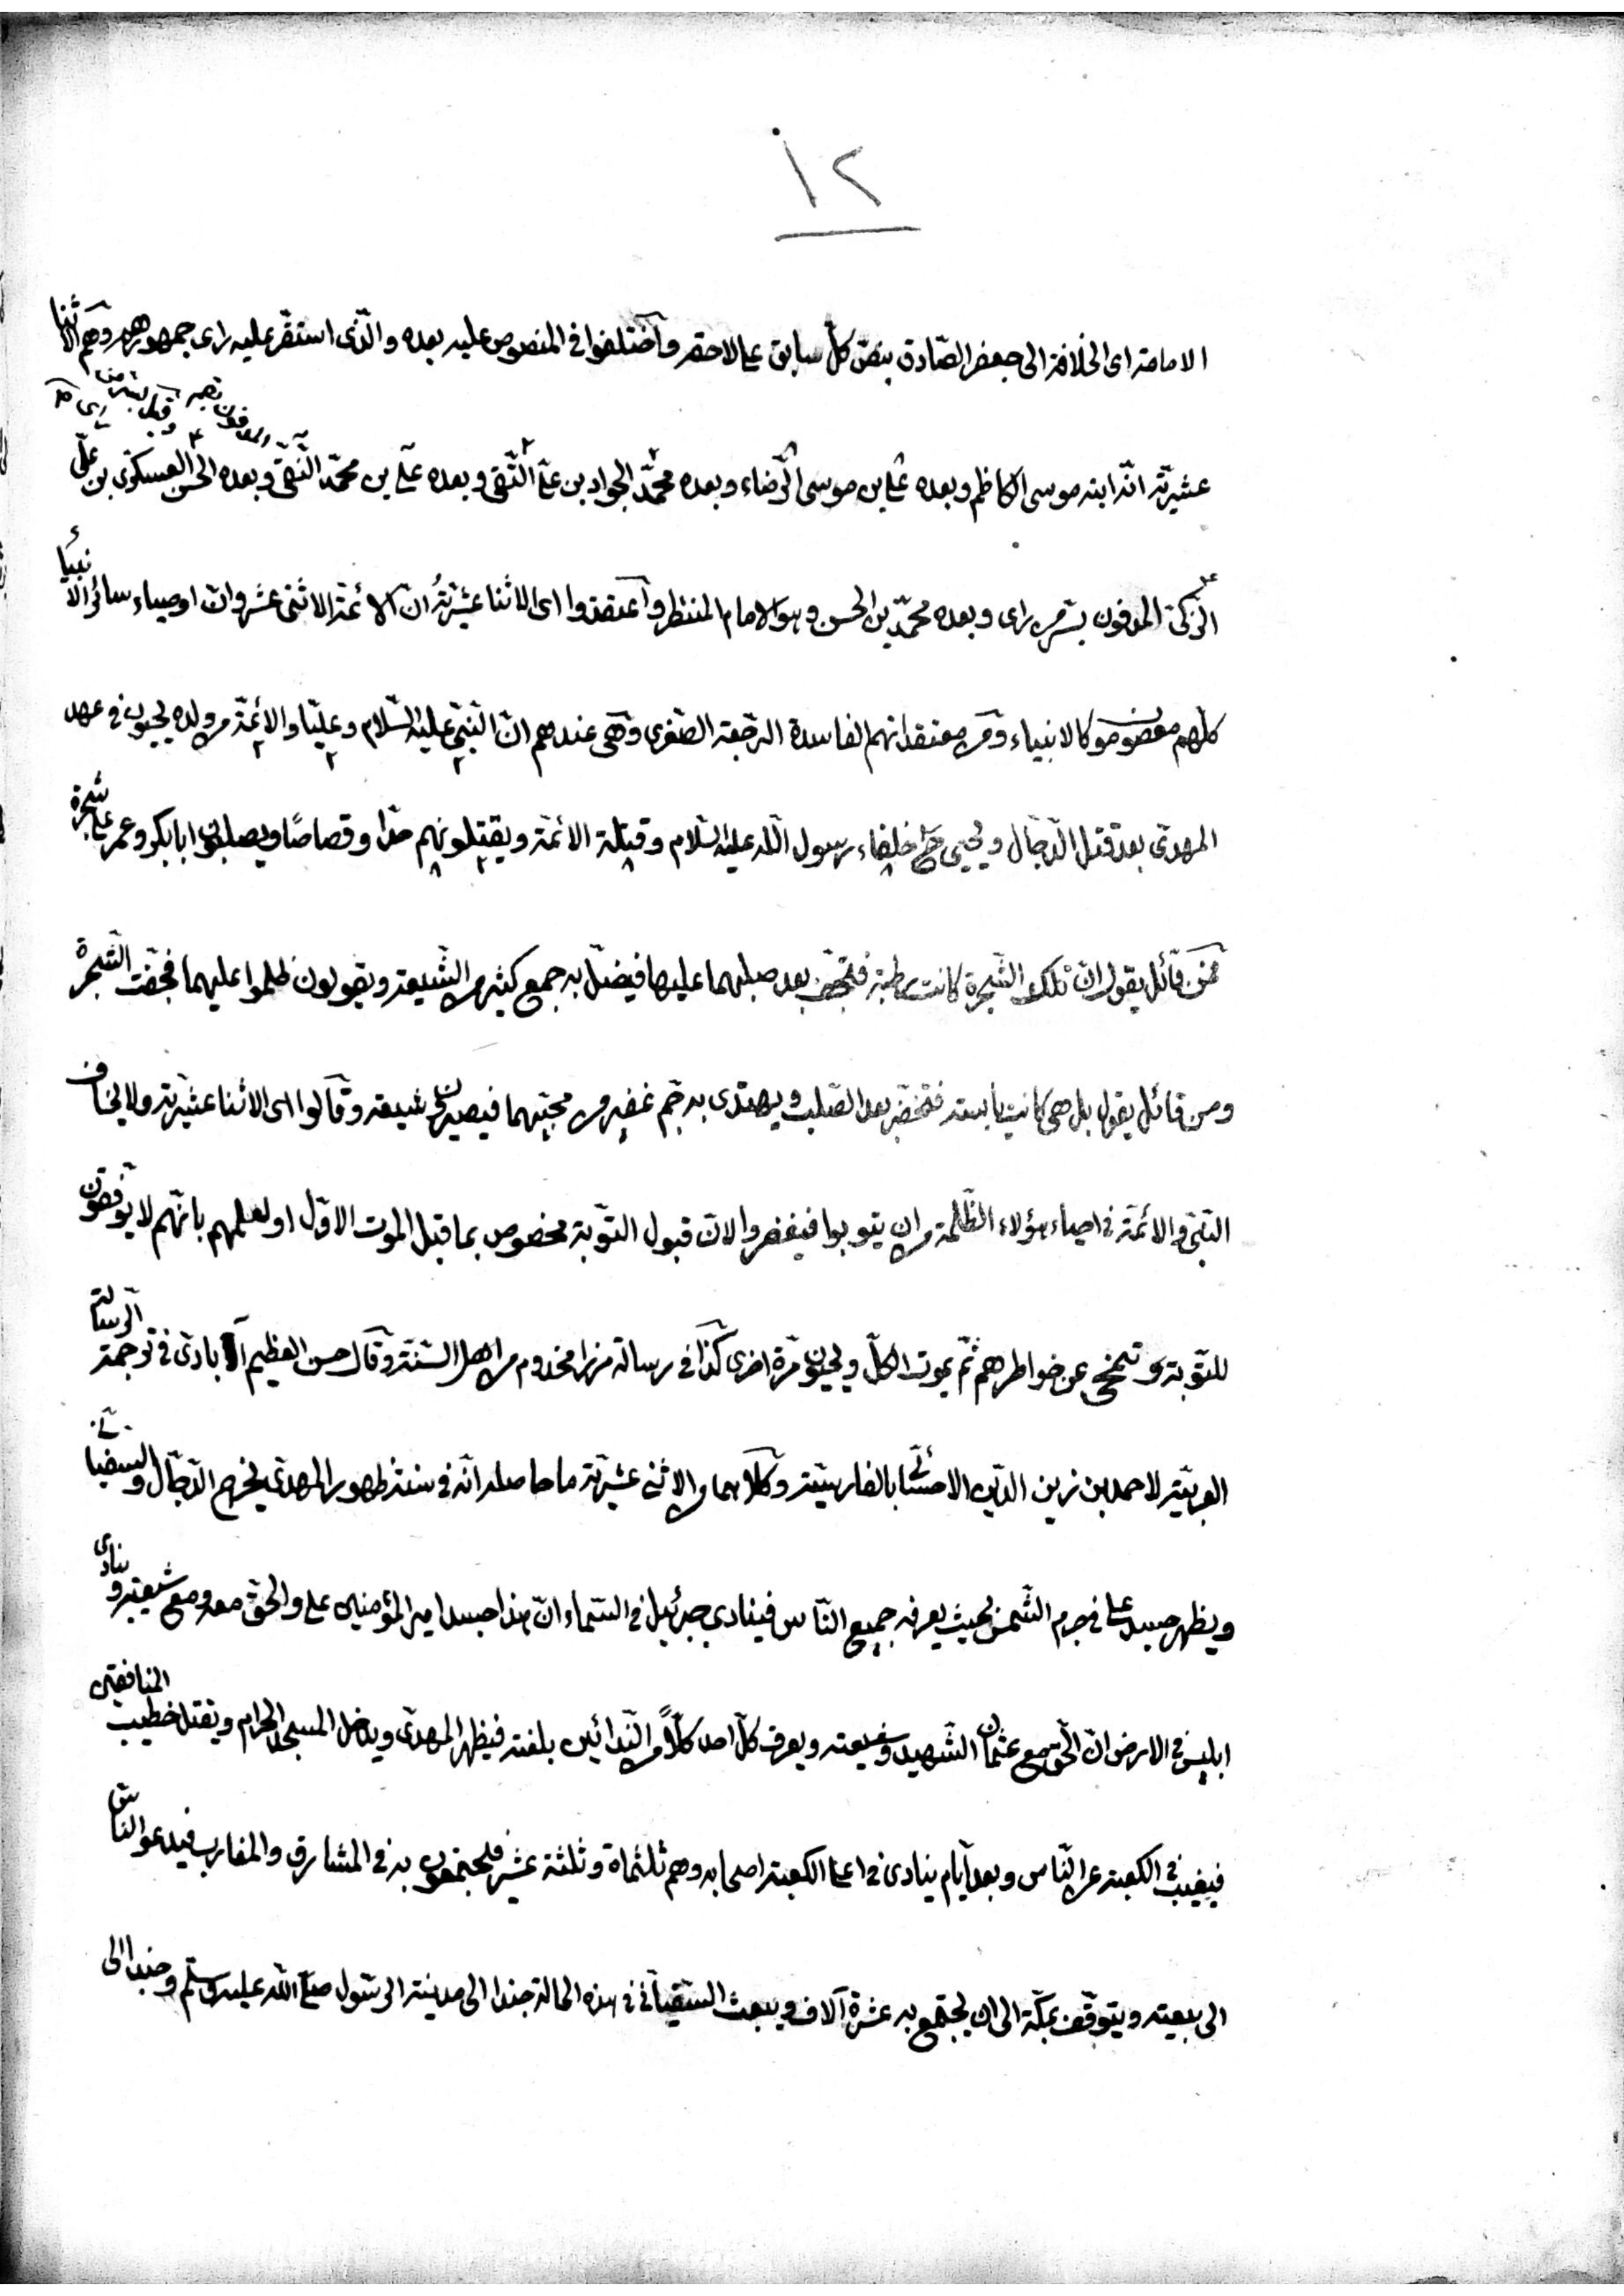 ١٢
الامامة اى الخلافة الى جعفر الصّادق بنصّ كلّ سابق على لاحقه وآختلفوا فى المنصوص عليه بعده والّذى استقرّ عليه راى جمهورهم وهم الاثنا
المدفون بقم وقيل بسر من راى
عشيريّة انّه ابنه موسى الكاظم وبعده علىّ بن موسى الرّضاء وبعده محمّد الجواد بن علىّ التّقى وبعده علىّ بن محمّد النّقىّ وبعده الحسن العسكرىّ بن علىّ
الزّكىّ المدفون بسر من راى وبعده محمّد بن الحسن وهو الامام المنتظر وآعتقدوا اى الاثنا عشيريّة أن الائمّة الاثنى عشر وانّ اوصياء سائر الانبياء
كلّهم معصومون كالانبياء ومن معتقداتهم الفاسدة الرّجعة الصّغرى وهى عندهم انّ النّبىّ عليه السّلام وعليّا والائمّة من ولده يحيون فى عهد
المهدىّ بعد قتل الدّجّال ويحيى خلفاء رسول اللّه عليه السّلام وقتلة الائمّة ويقتلونهم حدّا وقصاصًا ويصلبون ابا بكر وعمر على شجرة
فمن قائل يقول انّ تلك الشّجرة كانت رطبة فتجفّ بعد صلبهما عليها فيضلّ به جمع كثير من الشّيعة ويقولون ظلموا عليهما فجفّت الشّجرة
ومن قائل يقول بل هى كانت يابسة فتخضرّ بعد الصّلب ويهتدى به جمّ غفير من محبّيهما فيصيرون شيعة وقالوا اى الاثنا عشيريّة ولا يخاف
النّبىّ والائمّة فى احياء هؤلاء الظّلمة من ان يتوبوا فيغفروا لانّ قبول التّوبة مخصوص بما قبل الموت الاوّل او لعلمهم بانّهم لا يوفّقون
للتّوبة وتمحى عن خواطرهم ثمّ يموت الكلّ ويحيون مرّة اخرى كذا فى رسالة مرزا مخدوم من اهل السّنّة وقال حسن العظيم آبادى فى ترجمة الرّسالة
العربيّة لاحمد بن زين الدّين الاحسائى بالفارسيّة وكلاهما من الاثنى عشيريّة ما حاصله انّه فى سنة ظهور المهدىّ يخرج الدّجّال والسفيانى
ويظهر جسد علىّ فى جرم الشّمس بحيث يعرفه جميع النّاس فينادى جبرئيل فى السّماء انّ هذا جسد امير المؤمنين على والحقّ معه ومع شيعته وينادى
ابليس فى الارض انّ الحقّ مع عثمان الشّهيد وشيعته ويعرف كلّ احد كلّاً من النّدائين بلغته فيظهر المهدىّ ويدخل المسجد الحرام ويقتل خطيب المنافقين
فيغيب فى الكعبة عن النّاس وبعد ايّام ينادى فى اعلى الكعبة اصحابه وهم ثلثمائة وثلثة عشر فيجتمعون به فى المشارق والمغارب فيدعو النّاس
الى بيعته ويتوقّف بمكّة الى ان يجتمع به عشرة آلاف ويبعث السّفيانى فى هذه الحالة جندا الى مدينة الرسّول صلّى اللّه عليه وسلّم وجندا الى